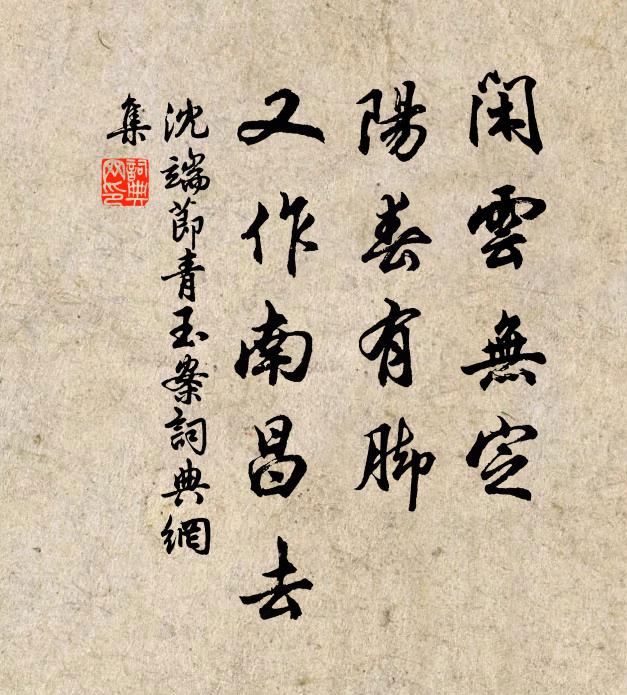 閑雲無定
陽春有脚
又作南昌去
沈端節青玉案詞典網
集
詞典
网印